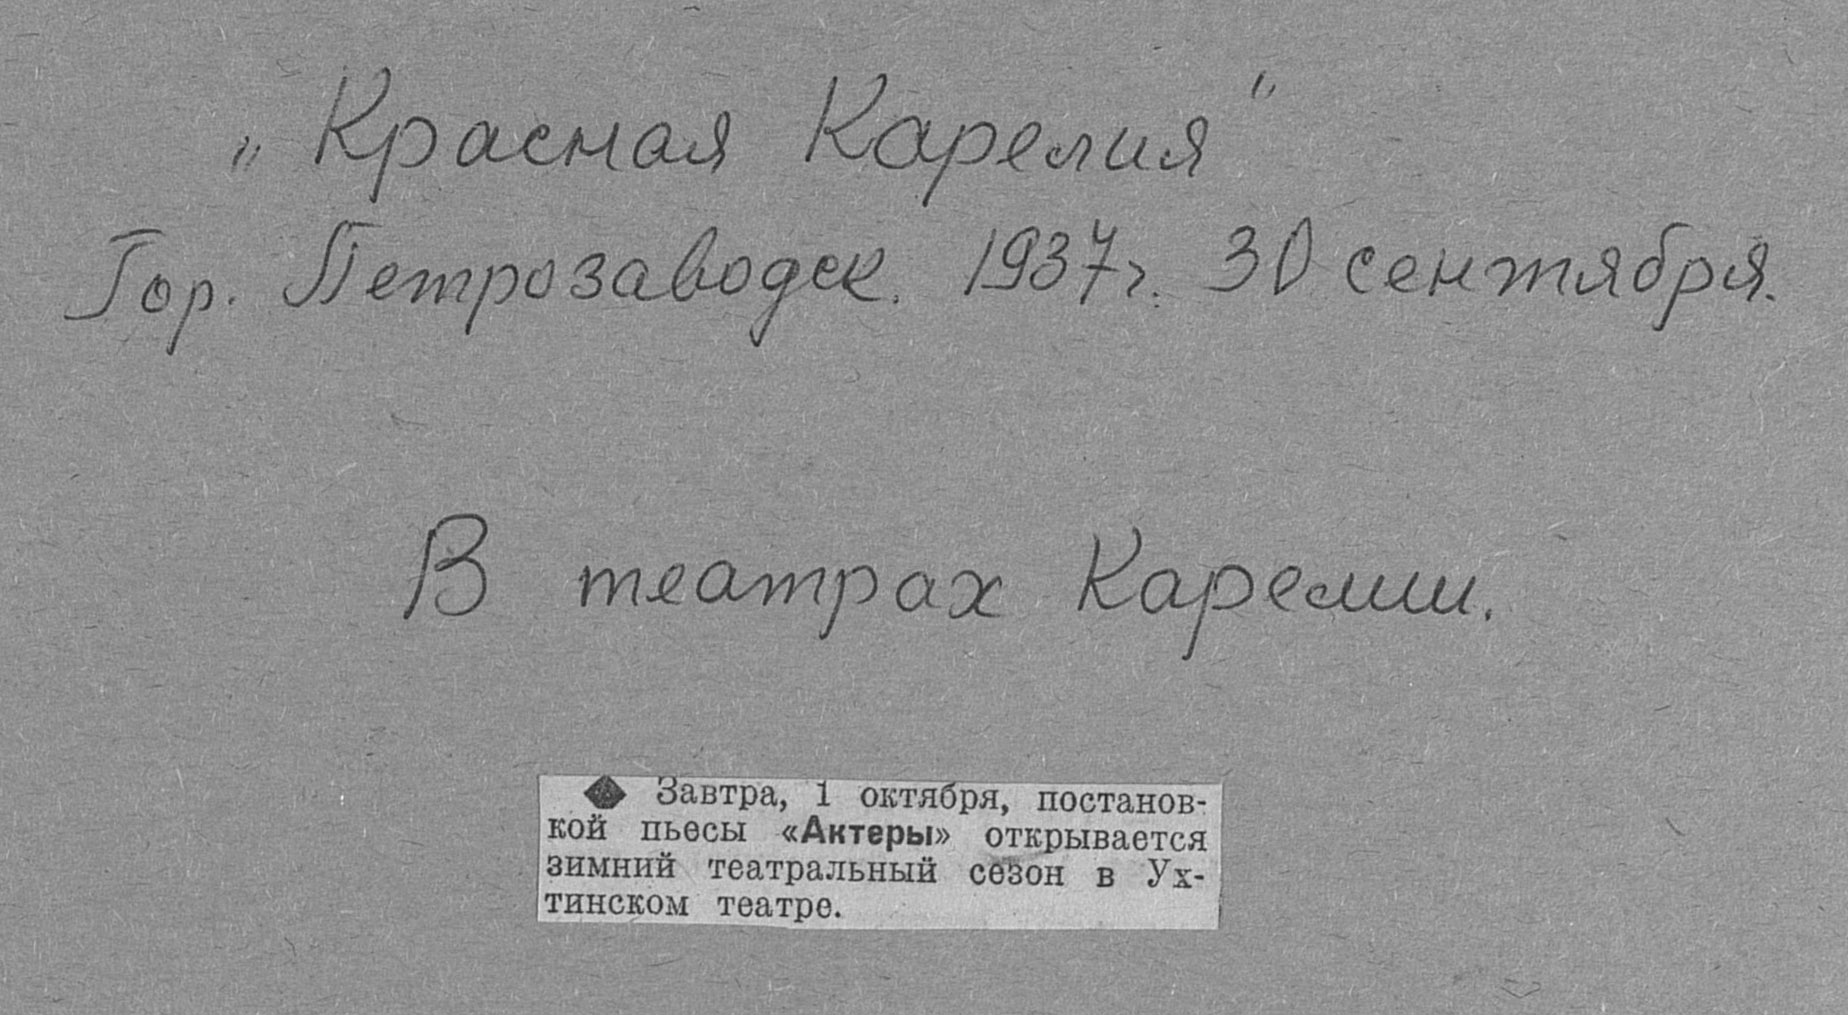 „Красная Карелия"
Гор. Петрозаводск. 1937г. 30 сентября.
В театрах Карелии.
◆ Завтра, 1 октября, постанов-
кой пьесы «Актеры» открывается
зимний театральный сезон в Ух-
тинском театре.